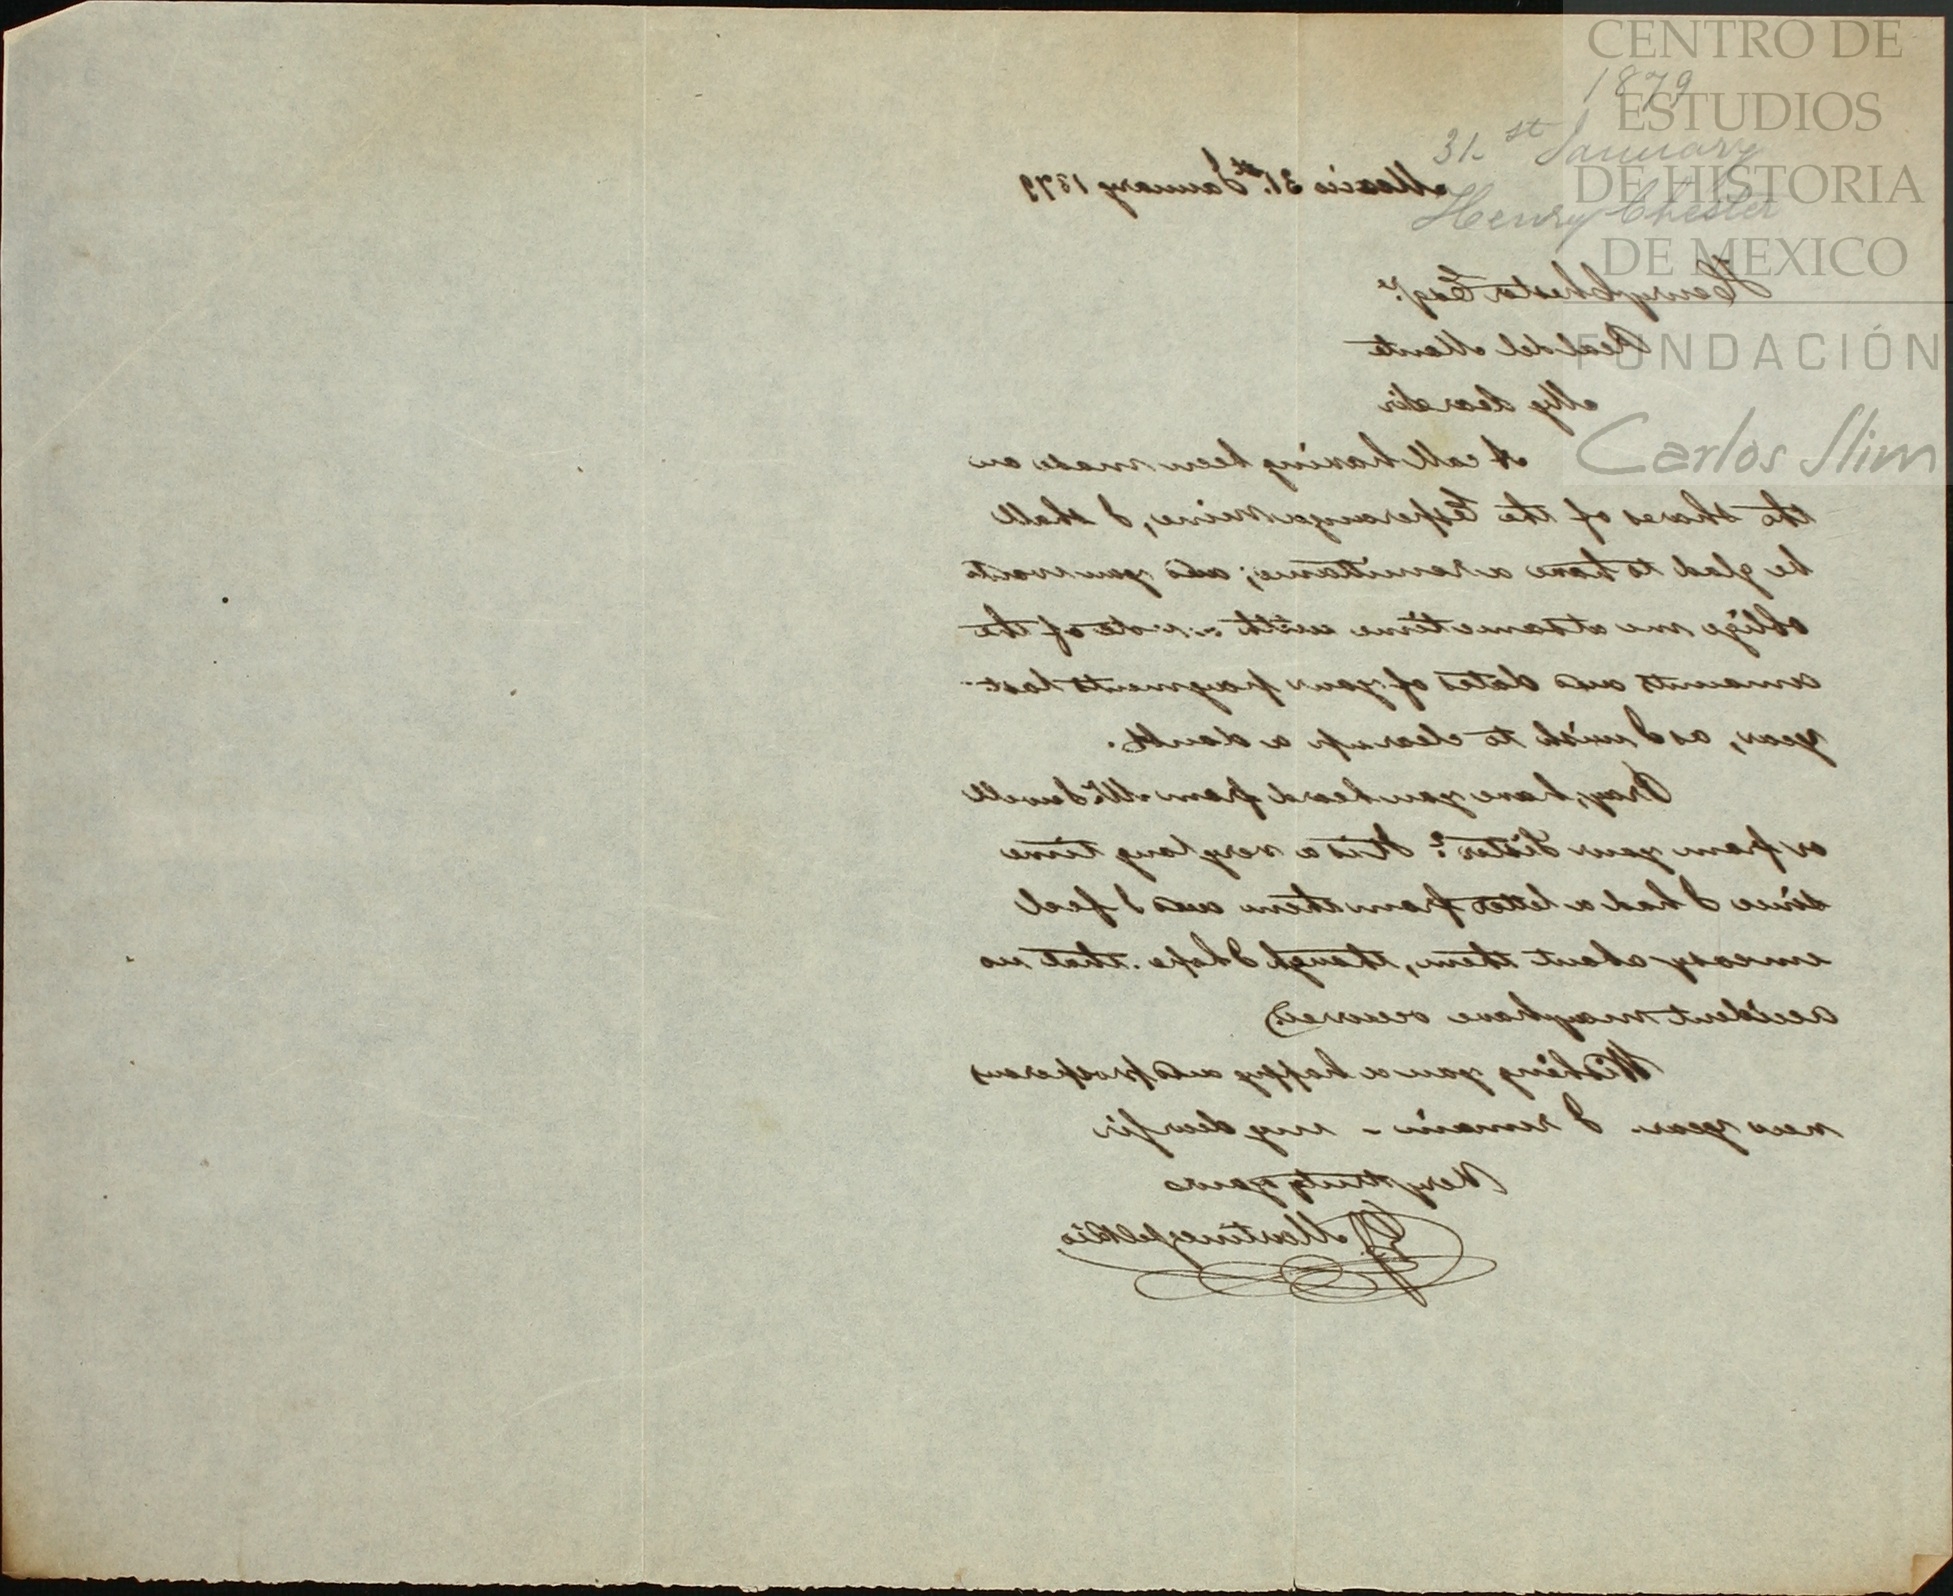 CENTRO DE
ESTUDIOS
DE HISTORIA
DE MEXICO
FUNDACIÓN
Carlos Slim
1879
31st January
Henry Chester
Mexico 31st January 1879
Henry Chester Esqre
Real del Monte
My dear Sir
A call having been made on
the shares of the Esperanza Mine, I shall
be glad to have a remittance; and you will
oblige me at same time with a note of the
amounts and dates of your payments last
year, as I wish to clear up a doubt.
Pray, have you heard from Mr
or from your Sister? It is a very long time
since I had a letter from them and I feel
uneasy about them, though I hope that no
accident may have occurred
Wishing you a happy and prosperous
new year I remain - my dear Sir
Very truly yours
Martinez del Rio